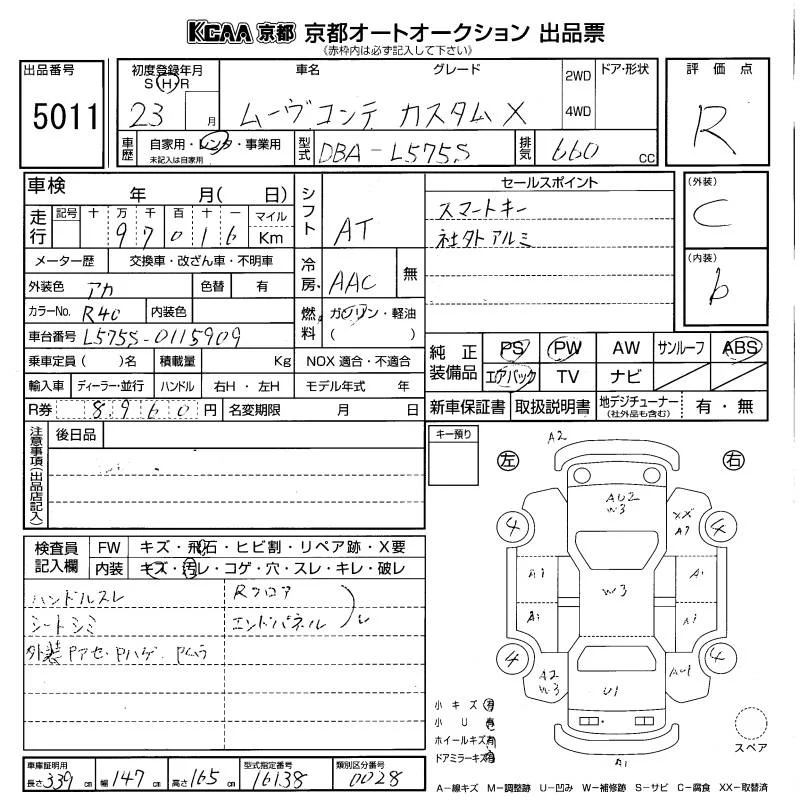 KCAA 京都 京都オートオークション 出品票
(赤枠内は必ず記入して下さい)
出品番号
5011
初度登録年月
S・H・R
23 月
車名 グレード
ムーヴコンテ カスタム X
2WD
4WD
ドア・形状
評価点
R
車歴
自家用・レンタ・事業用
未記入は自家用
型式
DBA-L575S
排気
660 CC
車検 年 月( 日)
走行
記号 十 万 千 百 十 一 マイル
97016 Km
メーター歴 交換車・改ざん車・不明車
外装色 アカ 色替 有
カラーNo. R40 内装色
車台番号 L575S-0115909
乗車定員 ( )名 積載量 Kg
輸入車 ディーラー・並行 ハンドル 右H・左H
R券 8960円 名変期限 月 日
シフト AT
冷房 AAC 無
燃料 ガソリン・軽油
( )
NOX 適合・不適合
モデル年式 年
セールスポイント
スマートキー
社外アルミ
(外装)
C
(内装)
b
純正装備品
PS PW AW サンルーフ ABS
エアバック TV ナビ
新車保証書 取扱説明書 地デジチューナー(社外品も含む) 有・無
注意事項(出品店記入)
後日品
キー預り
検査員記入欄
FW キズ・飛石・ヒビ割・リペア跡・X要
内装 キズ・汚レ・コゲ・穴・スレ・キレ・破レ
ハンドルスレ
シートシミ
外装Pアセ・Pハゲ・Pムラ
Rフロア
エンドパネル
左 右
A2
AU2
W3
XX
A7
4 4
A1 A1
W3
A1 A1
4 4
A2
W3
AU1
U1
A1
小キズ 有
小U 有
ホイールキズ 有
ドアミラーキズ 有
スペア
車庫証明用
長さ 339 cm 幅 147 cm 高さ 165 cm
型式指定番号
16138
類別区分番号
0028
A-線キズ M-調整跡 U-凹み W-補修跡 S-サビ C-腐食 XX-取替済